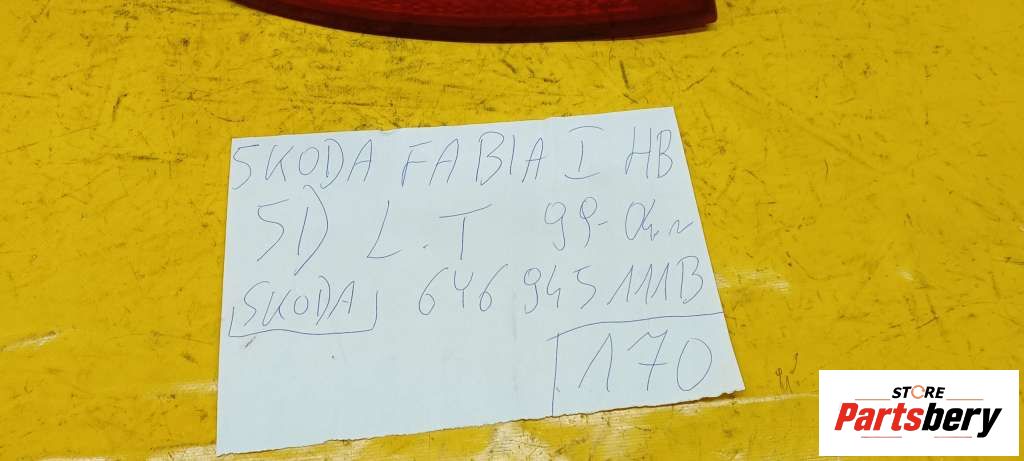 SKODA FABIA I HB
5D L.T 99-04r
SKODA 6Y6 945 111B
170
STORE
Partsbery